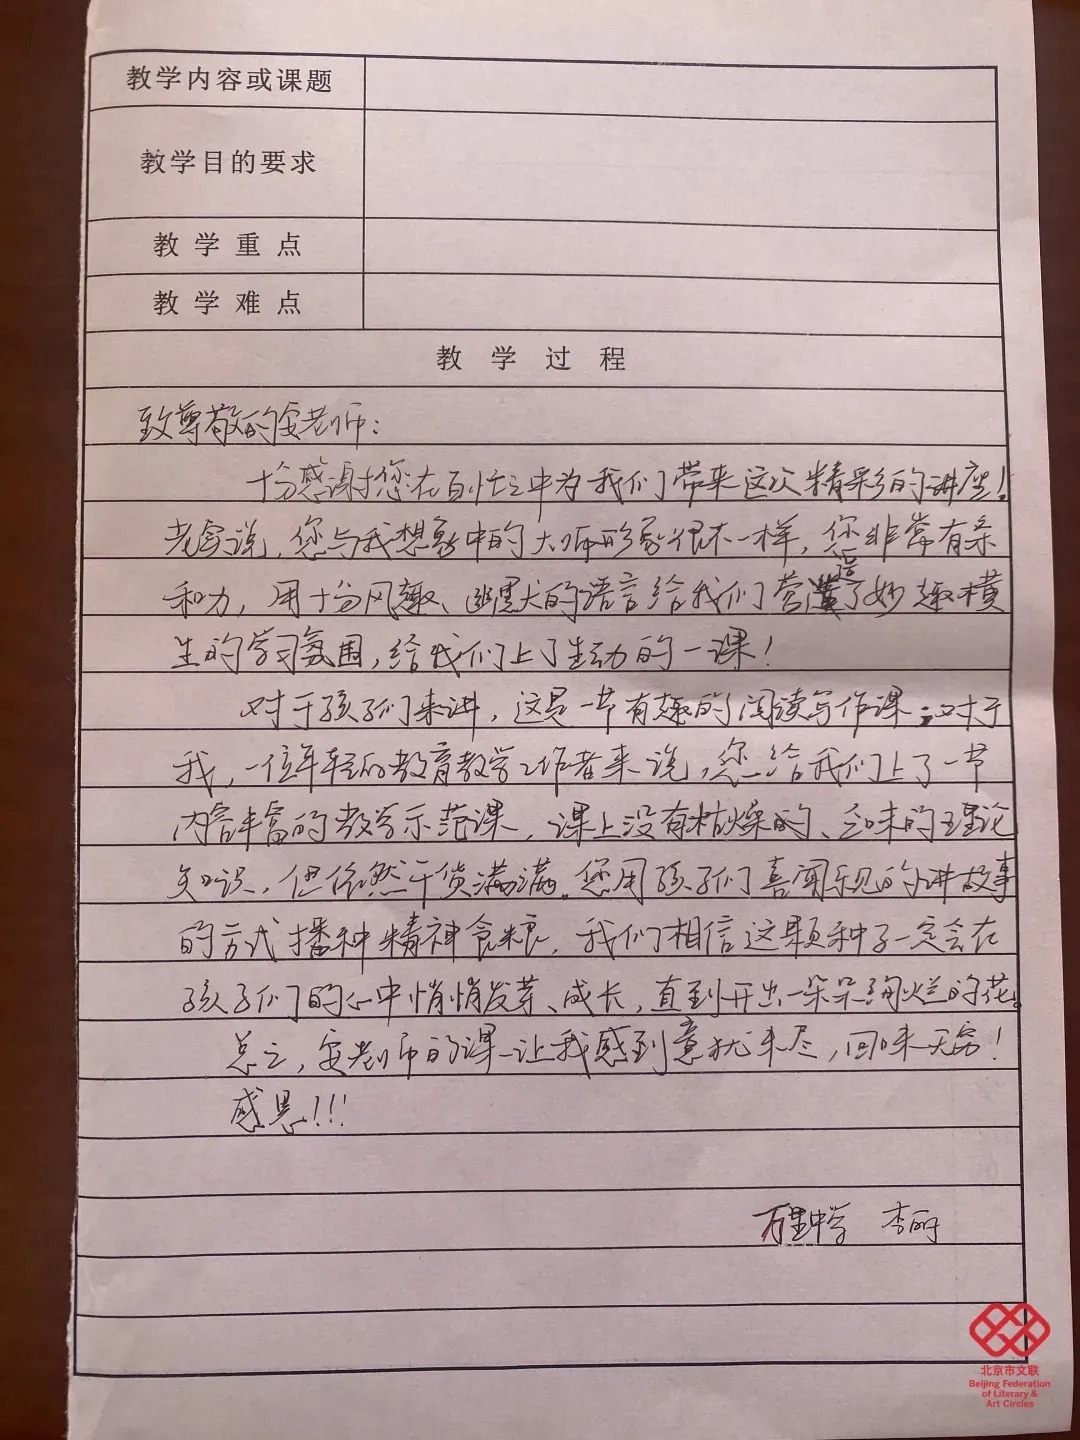 教学内容或课题
教学目的要求
教学重点
教学难点
教学过程
致尊敬的安老师：
十分感谢您在百忙之中为我们带来这次精彩的讲座！
老实说，您与我想象中的大师形象很不一样，您非常有亲
和力，用十分风趣、幽默的语言给我们营造了妙趣横
生的学习氛围，给我们上了生动的一课！
对于孩子们来讲，这是一节有趣的阅读写作课；对于
我，一位年轻的教育教学工作者来说，您给我们上了一节
内容丰富的教学示范课，课上没有枯燥的、乏味的理论
知识，但依然干货满满。您用孩子们喜闻乐见的讲故事
的方式播种精神食粮，我们相信这颗种子一定会在
孩子们的心中悄悄发芽、成长，直到开出一朵朵绚烂的花。
总之，安老师的课让我感到意犹未尽，回味无穷！
感恩！！！
万里中学 李丽
北京市文联
Beijing Federation
of Literary &
Art Circles